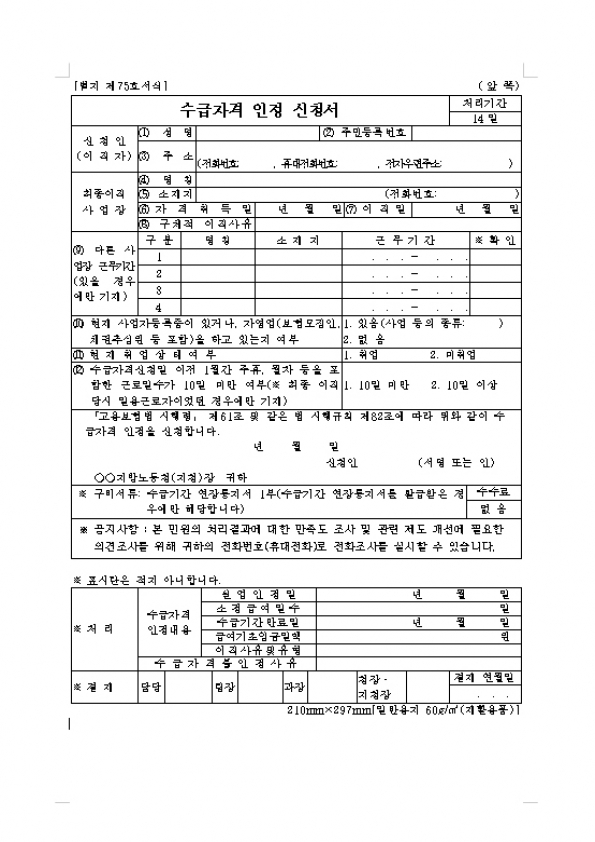 [별지 제75호서식] (앞 쪽)
수급자격 인정 신청서 처리기간
14일
신 청 인
(이 직 자)
(1) 성 명 (2) 주민등록번호
(3) 주 소
(전화번호: , 휴대전화번호: , 전자우편주소: )
최종이직
사 업 장
(4) 명 칭
(5) 소재지 (전화번호: )
(6) 자 격 취 득 일 년 월 일 (7) 이 직 일 년 월 일
(8) 구체적 이직사유
(9) 다른 사
업장 근무기간
(있을 경우
에만 기재)
구 분 명 칭 소 재 지 근 무 기 간 ※ 확 인
1 . . . - . . .
2 . . . - . . .
3 . . . - . . .
4 . . . - . . .
(10) 현재 사업자등록증이 있거나, 자영업(보험모집인,
채권추심원 등 포함)을 하고 있는지 여부
1. 있음(사업 등의 종류: )
2. 없 음
(11) 현 재 취 업 상 태 여 부 1. 취업 2. 미취업
(12) 수급자격신청일 이전 1월간 주휴, 월차 등을 포
함한 근로일수가 10일 미만 여부(※ 최종 이직
당시 일용근로자이었던 경우에만 기재)
1. 10일 미만 2. 10일 이상
「고용보험법 시행령」 제61조 및 같은 법 시행규칙 제82조에 따라 위와 같이 수
급자격 인정을 신청합니다.
년 월 일
신청인 (서명 또는 인)
○○지방노동청(지청)장 귀하
※ 구비서류: 수급기간 연장통지서 1부(수급기간 연장통지서를 발급받은 경
우에만 해당합니다)
수수료
없 음
※ 공지사항 : 본 민원의 처리결과에 대한 만족도 조사 및 관련 제도 개선에 필요한
의견조사를 위해 귀하의 전화번호(휴대전화)로 전화조사를 실시할 수 있습니다.
※ 표시란은 적지 아니합니다.
※ 처 리
수급자격
인정내용
실 업 인 정 일 년 월 일
소 정 급 여 일 수 일
수급기간만료일 년 월 일
급여기초임금일액 원
이직사유및유형
수 급 자 격 불 인 정 사 유
※ 결 재 담당 팀장 과장 청장·
지청장
결재 연월일
. . .
210mm×297mm[일반용지 60g/㎡(재활용품)]